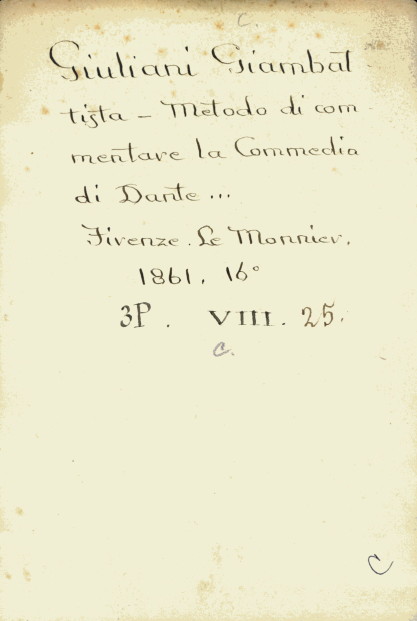 C.
Giuliani Giambat-
tista – Metodo di com-
mentare la Commedia
di Dante ...
Firenze. Le Monnier.
1861. 16°
3P. VIII. 25.
C.
C